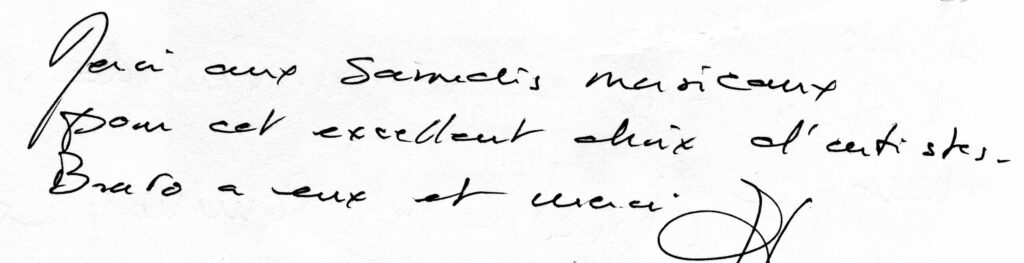 Merci aux Samedis musicaux
pour cet excellent choix d'artistes.
Bravo a eux et merci.